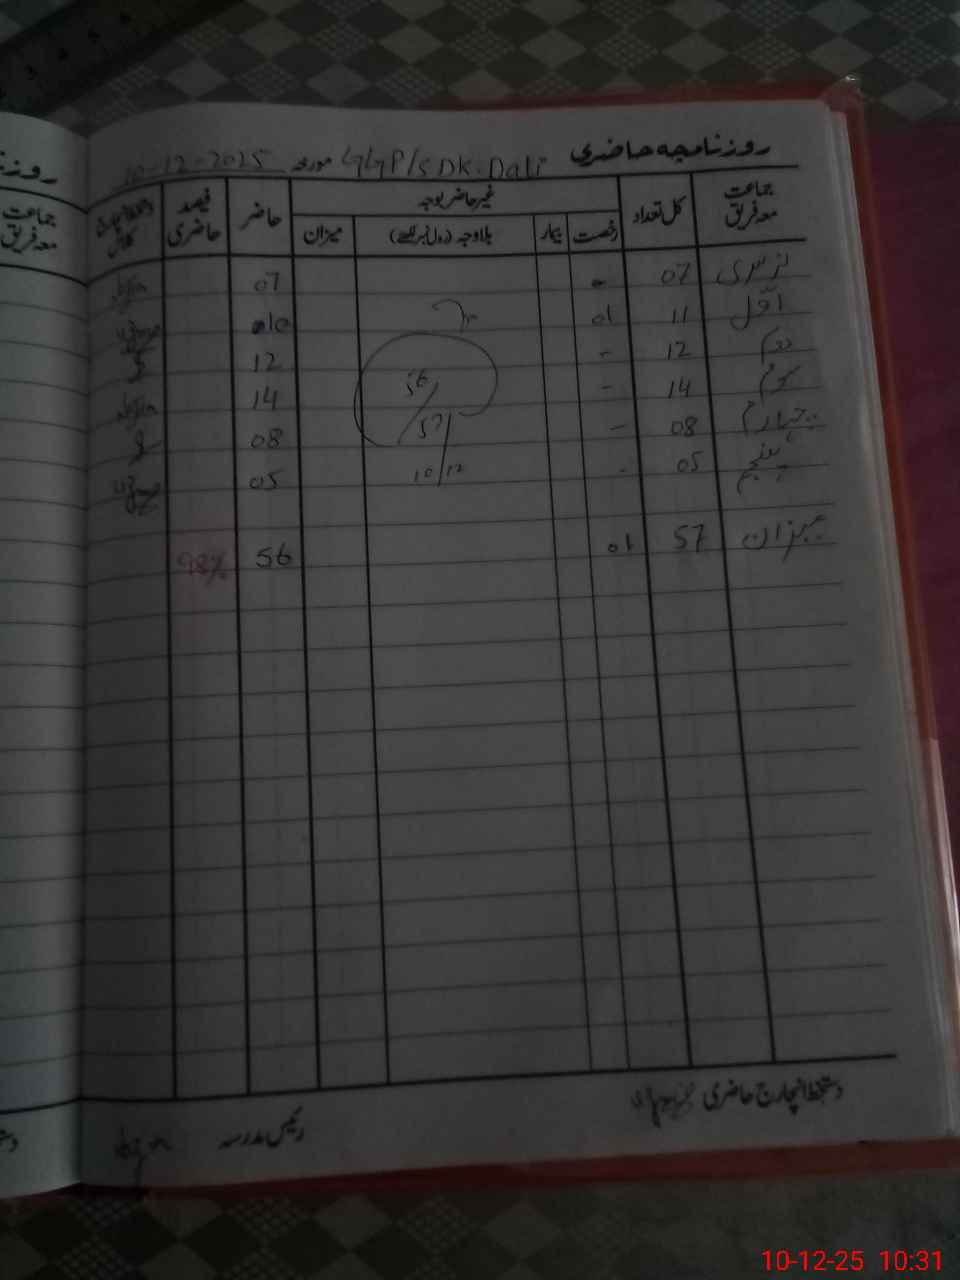 روزنامچہ حاضری GGP/S DK. Dali مورخہ 10-12-2025
جماعت معہ فریق کل تعداد غیر حاضر بوجہ حاضر فیصد حاضری
رخصت بیمار بلاوجہ (رول نمبر لکھیے) میزان
نرسری 07 - 07
اوّل 11 01 10
دوم 12 - 12
سوم 14 - 14
چہارم 08 - 08
پنجم 05 - 05
56/57
10/12
میزان 57 01 56 98%
دستخط انچارج حاضری
رئیس مدرسہ
روزنا
جماعت
معہ فریق
دستخ
3 4 5
10-12-25 10:31